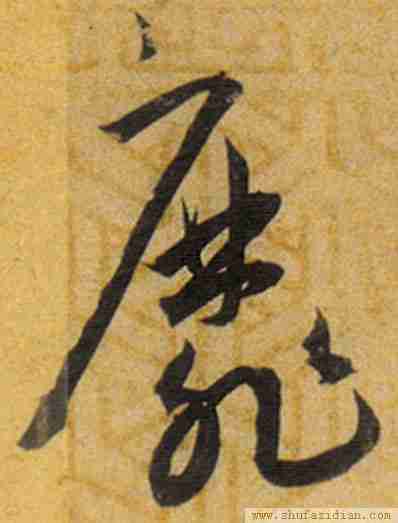 靡
www.shufazidian.com